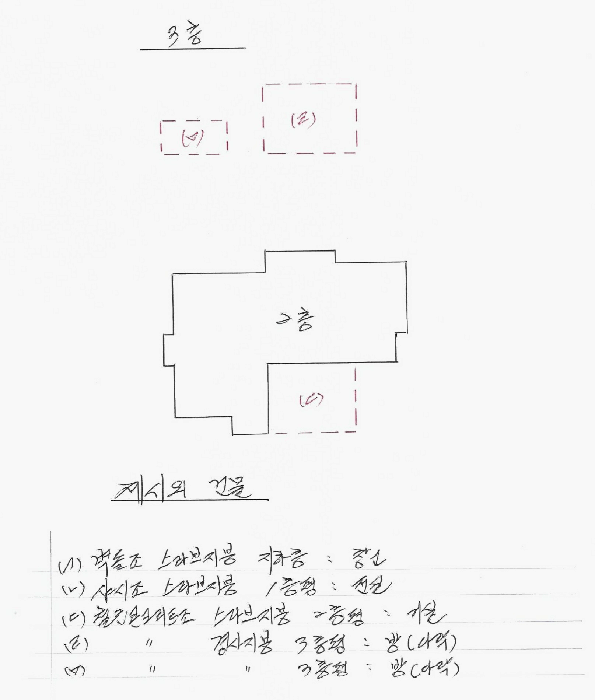 3층
(ㅁ)
(ㄹ)
2층
(ㄷ)
제시외 건물
(ㄱ) 벽돌조 스라브지붕 지하층 : 창고
(ㄴ) 샤시조 스라브지붕 1층평 :
(ㄷ) 철근콘크리트조 스라브지붕 2층평 : 거실
(ㄹ) " 경사지붕 3층평 : 방(다락)
(ㅁ) " " 3층평 : 방(다락)